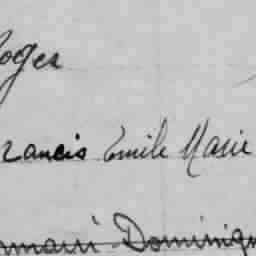 Roger
Francis Emile Marie
Germain Dominique